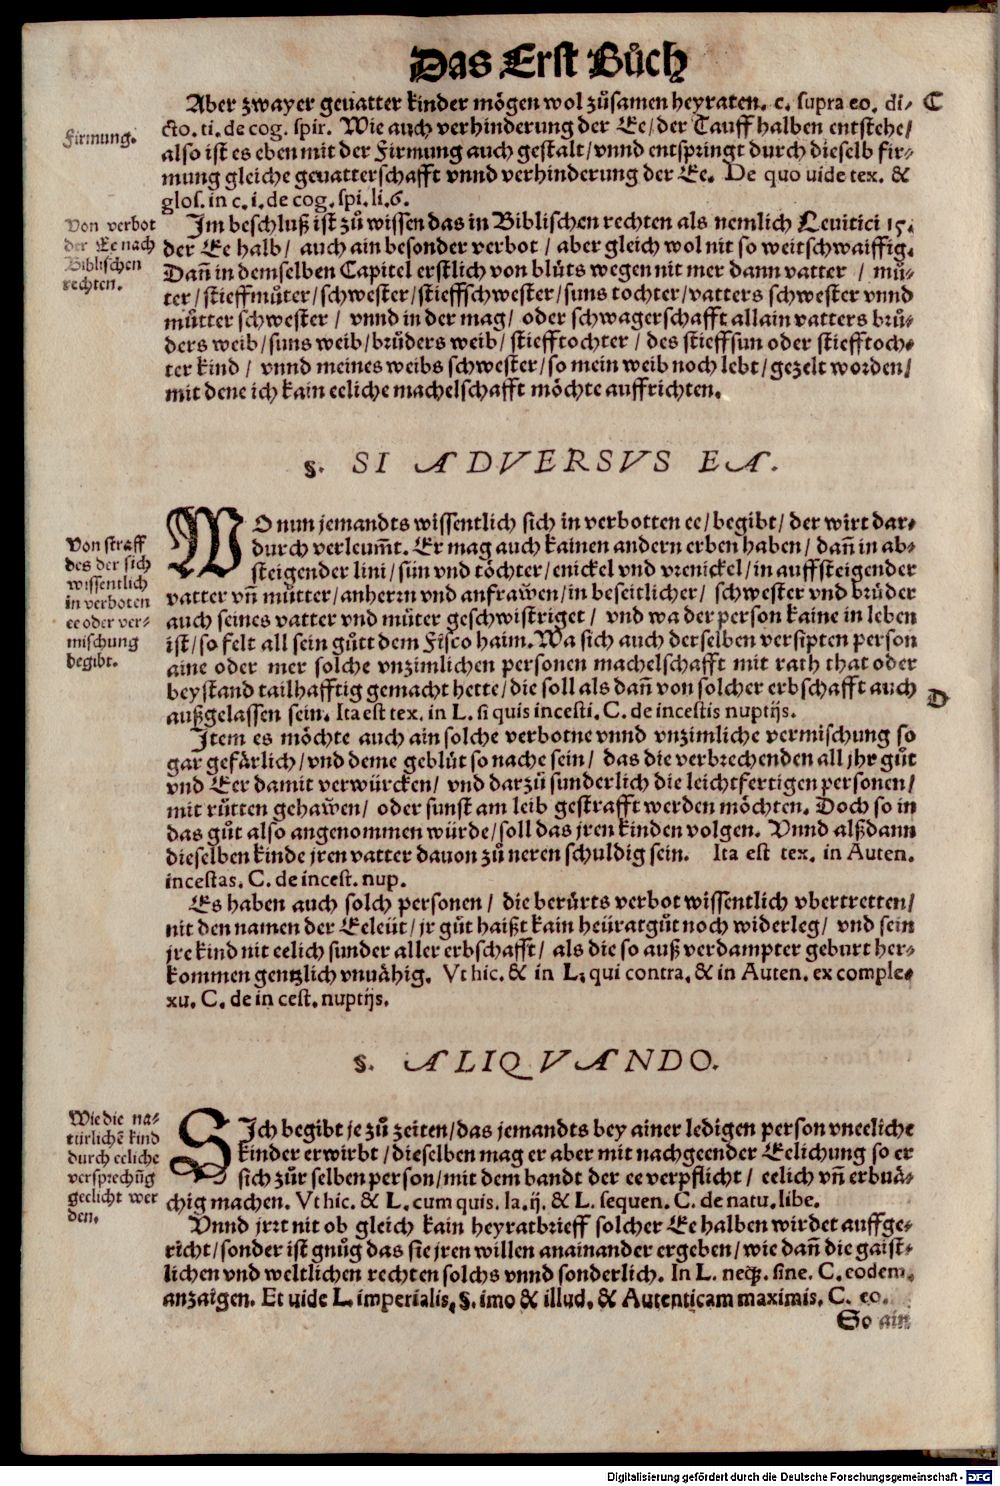 Das Erst Bůch
Aber zwayer geuatter kinder mögen wol zůsamen heyraten. c. supra eo. di- C
cto. ti. de cog. spir. Wie auch verhinderung der Ee/der Tauff halben entstehe/
also ist es eben mit der Firmung auch gestalt/vnnd entspringt durch dieselb fir-
mung gleiche geuatterschafft vnnd verhinderung der Ee. De quo uide tex. &
glos. in c. i. de cog. spi. li.6.
Firmung.
Im beschluß ist zů wissen das in Biblischen rechten als nemlich Leuitici 15.
der Ee halb/ auch ain besonder verbot/ aber gleich wol nit so weitschwaiffig.
Dañ in demselben Capitel erstlich von blůts wegen nit mer dann vatter / mů-
ter/stieffmůter/schwester/stieffschwester/suns tochter/vatters schwester vnnd
můtter schwester/ vnnd in der mag/ oder schwagerschafft allain vatters brů-
ders weib/suns weib/brůders weib/ stiefftochter/ des stieffsun oder stiefftoch-
ter kind/ vnnd meines weibs schwester/so mein weib noch lebt/gezelt worden/
mit dene ich kain eeliche machelschafft möchte auffrichten.
Von verbot
der Ee nach
Biblischen
rechten.
§. SI ADVERSVS EA.
WO nun jemandts wissentlich sich in verbotten ee/begibt/der wirt dar-
durch verleum̃t. Er mag auch kainen andern erben haben/ dañ in ab-
steigender lini/sün vnd töchter/enickel vnd vrenickel/in auffsteigender
vatter vñ můtter/anherrn vnd anfraw̃en/in beseitlicher/ schwester vnd brůder
auch seines vatter vnd můter geschwistriget/ vnd wa der person kaine in leben
ist/so felt all sein gůtt dem Fisco haim. Wa sich auch derselben versipten person
aine oder mer solche vnzimlichen personen machelschafft mit rath that oder
beystand tailhafftig gemacht hette/die soll als dañ von solcher erbschafft auch D
außgelassen sein. Ita est tex. in L. si quis incesti. C. de incestis nuptijs.
Von straff
des der sich
wissentlich
in verboten
ee oder ver-
mischung
begibt.
Item es möchte auch ain solche verbotne vnnd vnzimliche vermischung so
gar gefärlich/vnd deme geblůt so nache sein/ das die verbrechenden all jhr gůt
vnd Eer damit verwürcken/ vnd darzů sunderlich die leichtfertigen personen/
mit růtten gehaw̃en/ oder sunst am leib gestrafft werden möchten. Doch so in
das gůt also angenommen würde/soll das jren kinden volgen. Vnnd alßdann
dieselben kinde jren vatter dauon zů neren schuldig sein. Ita est tex. in Auten.
incestas. C. de incest. nup.
Es haben auch solch personen/ die berürts verbot wissentlich vbertretten/
nit den namen der Eeleüt/jr gůt haißt kain heüratgůt noch widerleg/ vnd sein
jre kind nit eelich sunder aller erbschafft/ als die so auß verdampter geburt her-
kommen gentzlich vnuähig. Vt hic. & in L. qui contra. & in Auten. ex comple-
xu. C. de in cest. nuptijs.
§. ALIQVANDO.
SIch begibt je zů zeiten/das jemandts bey ainer ledigen person vneeliche
kinder erwirbt/dieselben mag er aber mit nachgeender Eelichung so er
sich zůr selben person/mit dem bandt der ee verpflicht/ eelich vñ erbuä-
chig machen. Vt hic. & L. cum quis. la. ij. & L. sequen. C. de natu. libe.
Wie die na-
türlichẽ kind
durch eeliche
versprechũg
geelicht wer
den.
Vnnd jrrt nit ob gleich kain heyratbrieff solcher Ee halben wirdet auffge-
richt/sonder ist gnůg das sie jren willen anainander ergeben/wie dañ die gaist-
lichen vnd weltlichen rechten solchs vnnd sonderlich. In L. neqȝ. sine. C. eodem.
anzaigen. Et uide L. imperialis. §. imo & illud. & Autenticam maximis. C. eo.
So ain
Digitalisierung gefördert durch die Deutsche Forschungsgemeinschaft - DFG